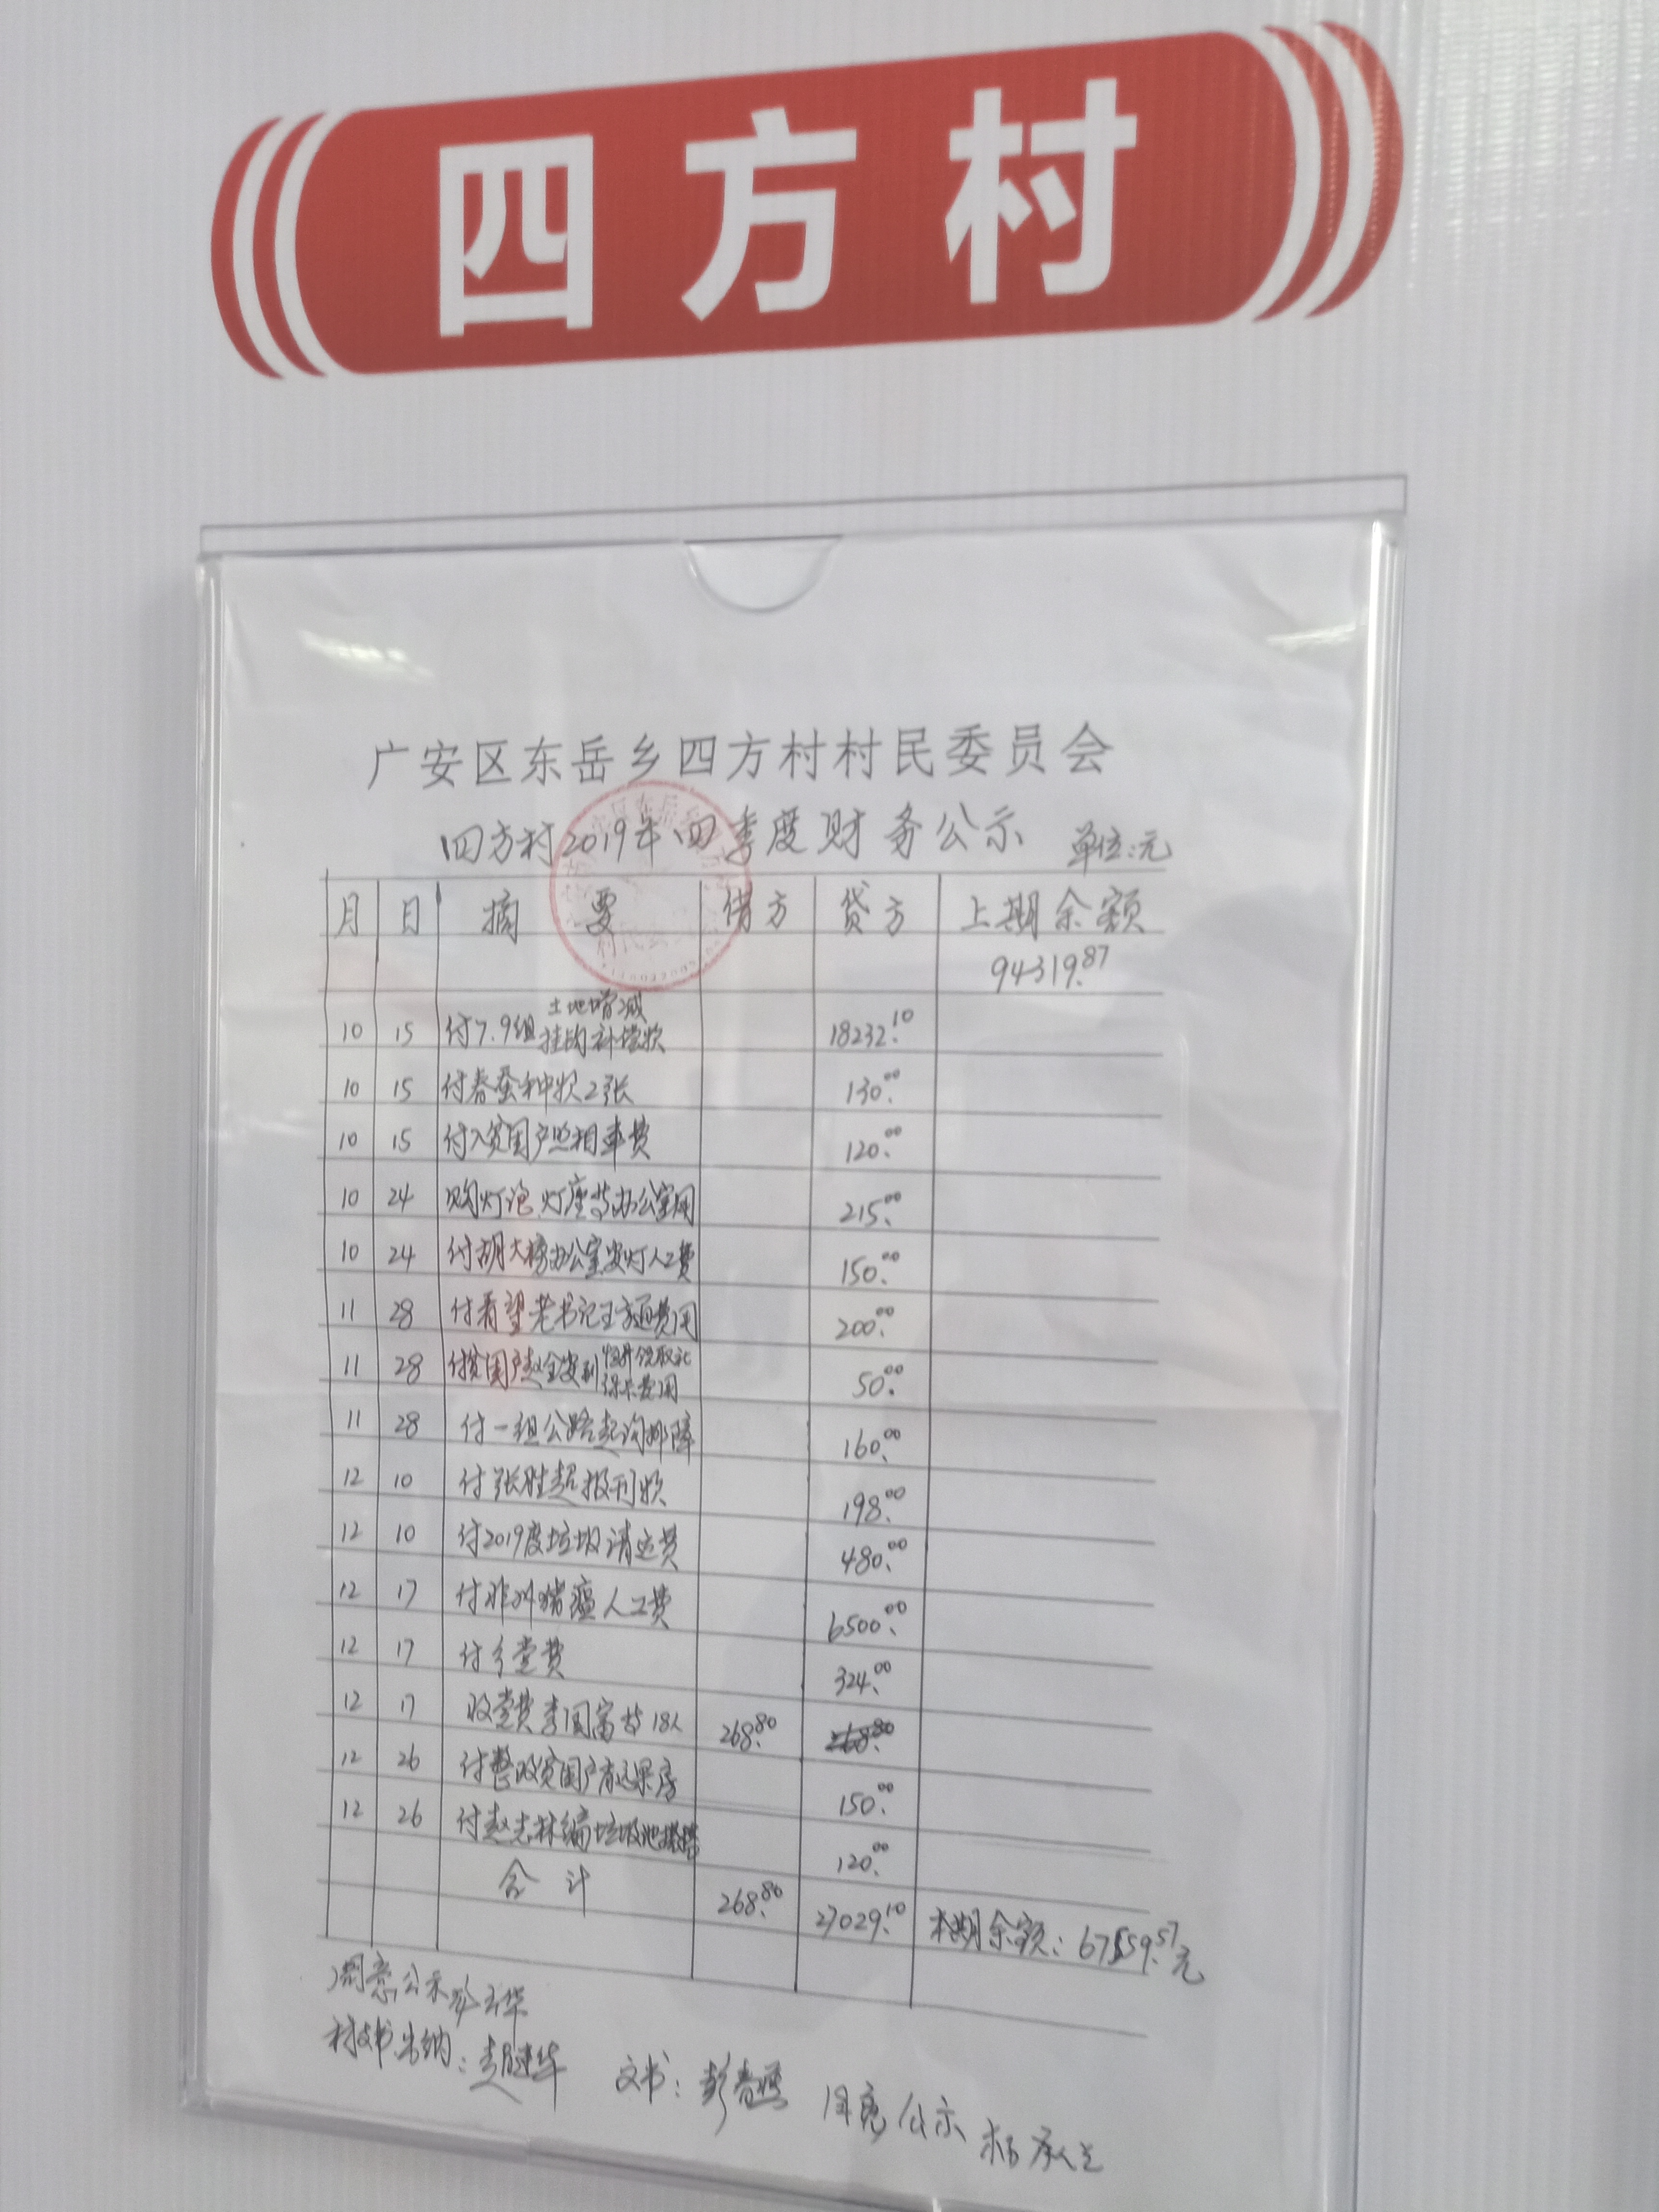 四方村
广安区东岳乡四方村村民委员会
四方村2019年四季度财务公示 单位:元
月 日 摘要 借方 贷方 上期余额
94319.87
10 15 付7.9组土地增减挂钩补偿款 18232.10
10 15 付春蚕种款2张 130.00
10 15 付入贫困户照相车费 120.00
10 24 购灯泡灯座等办公室用 215.00
10 24 付胡大榜办公室安灯人工费 150.00
11 28 付看望老书记王方通费用 200.00
11 28 付贫困户赵全安到 领取社保卡费用 50.00
11 28 付一组公路赵沟排障 160.00
12 10 付张胜超报刊款 198.00
12 10 付2019度垃圾清运费 480.00
12 17 付非洲猪瘟人工费 6500.00
12 17 付乡党费 324.00
12 17 收党费李国富等18人 268.80 268.80
12 26 付整改贫困户 房 150.00
12 26 付赵志林编垃圾池 120.00
合计 268.80 27029.10 本期余额:67559.57元
同意公示
村支书出纳: 华 文书:彭春 同意公示